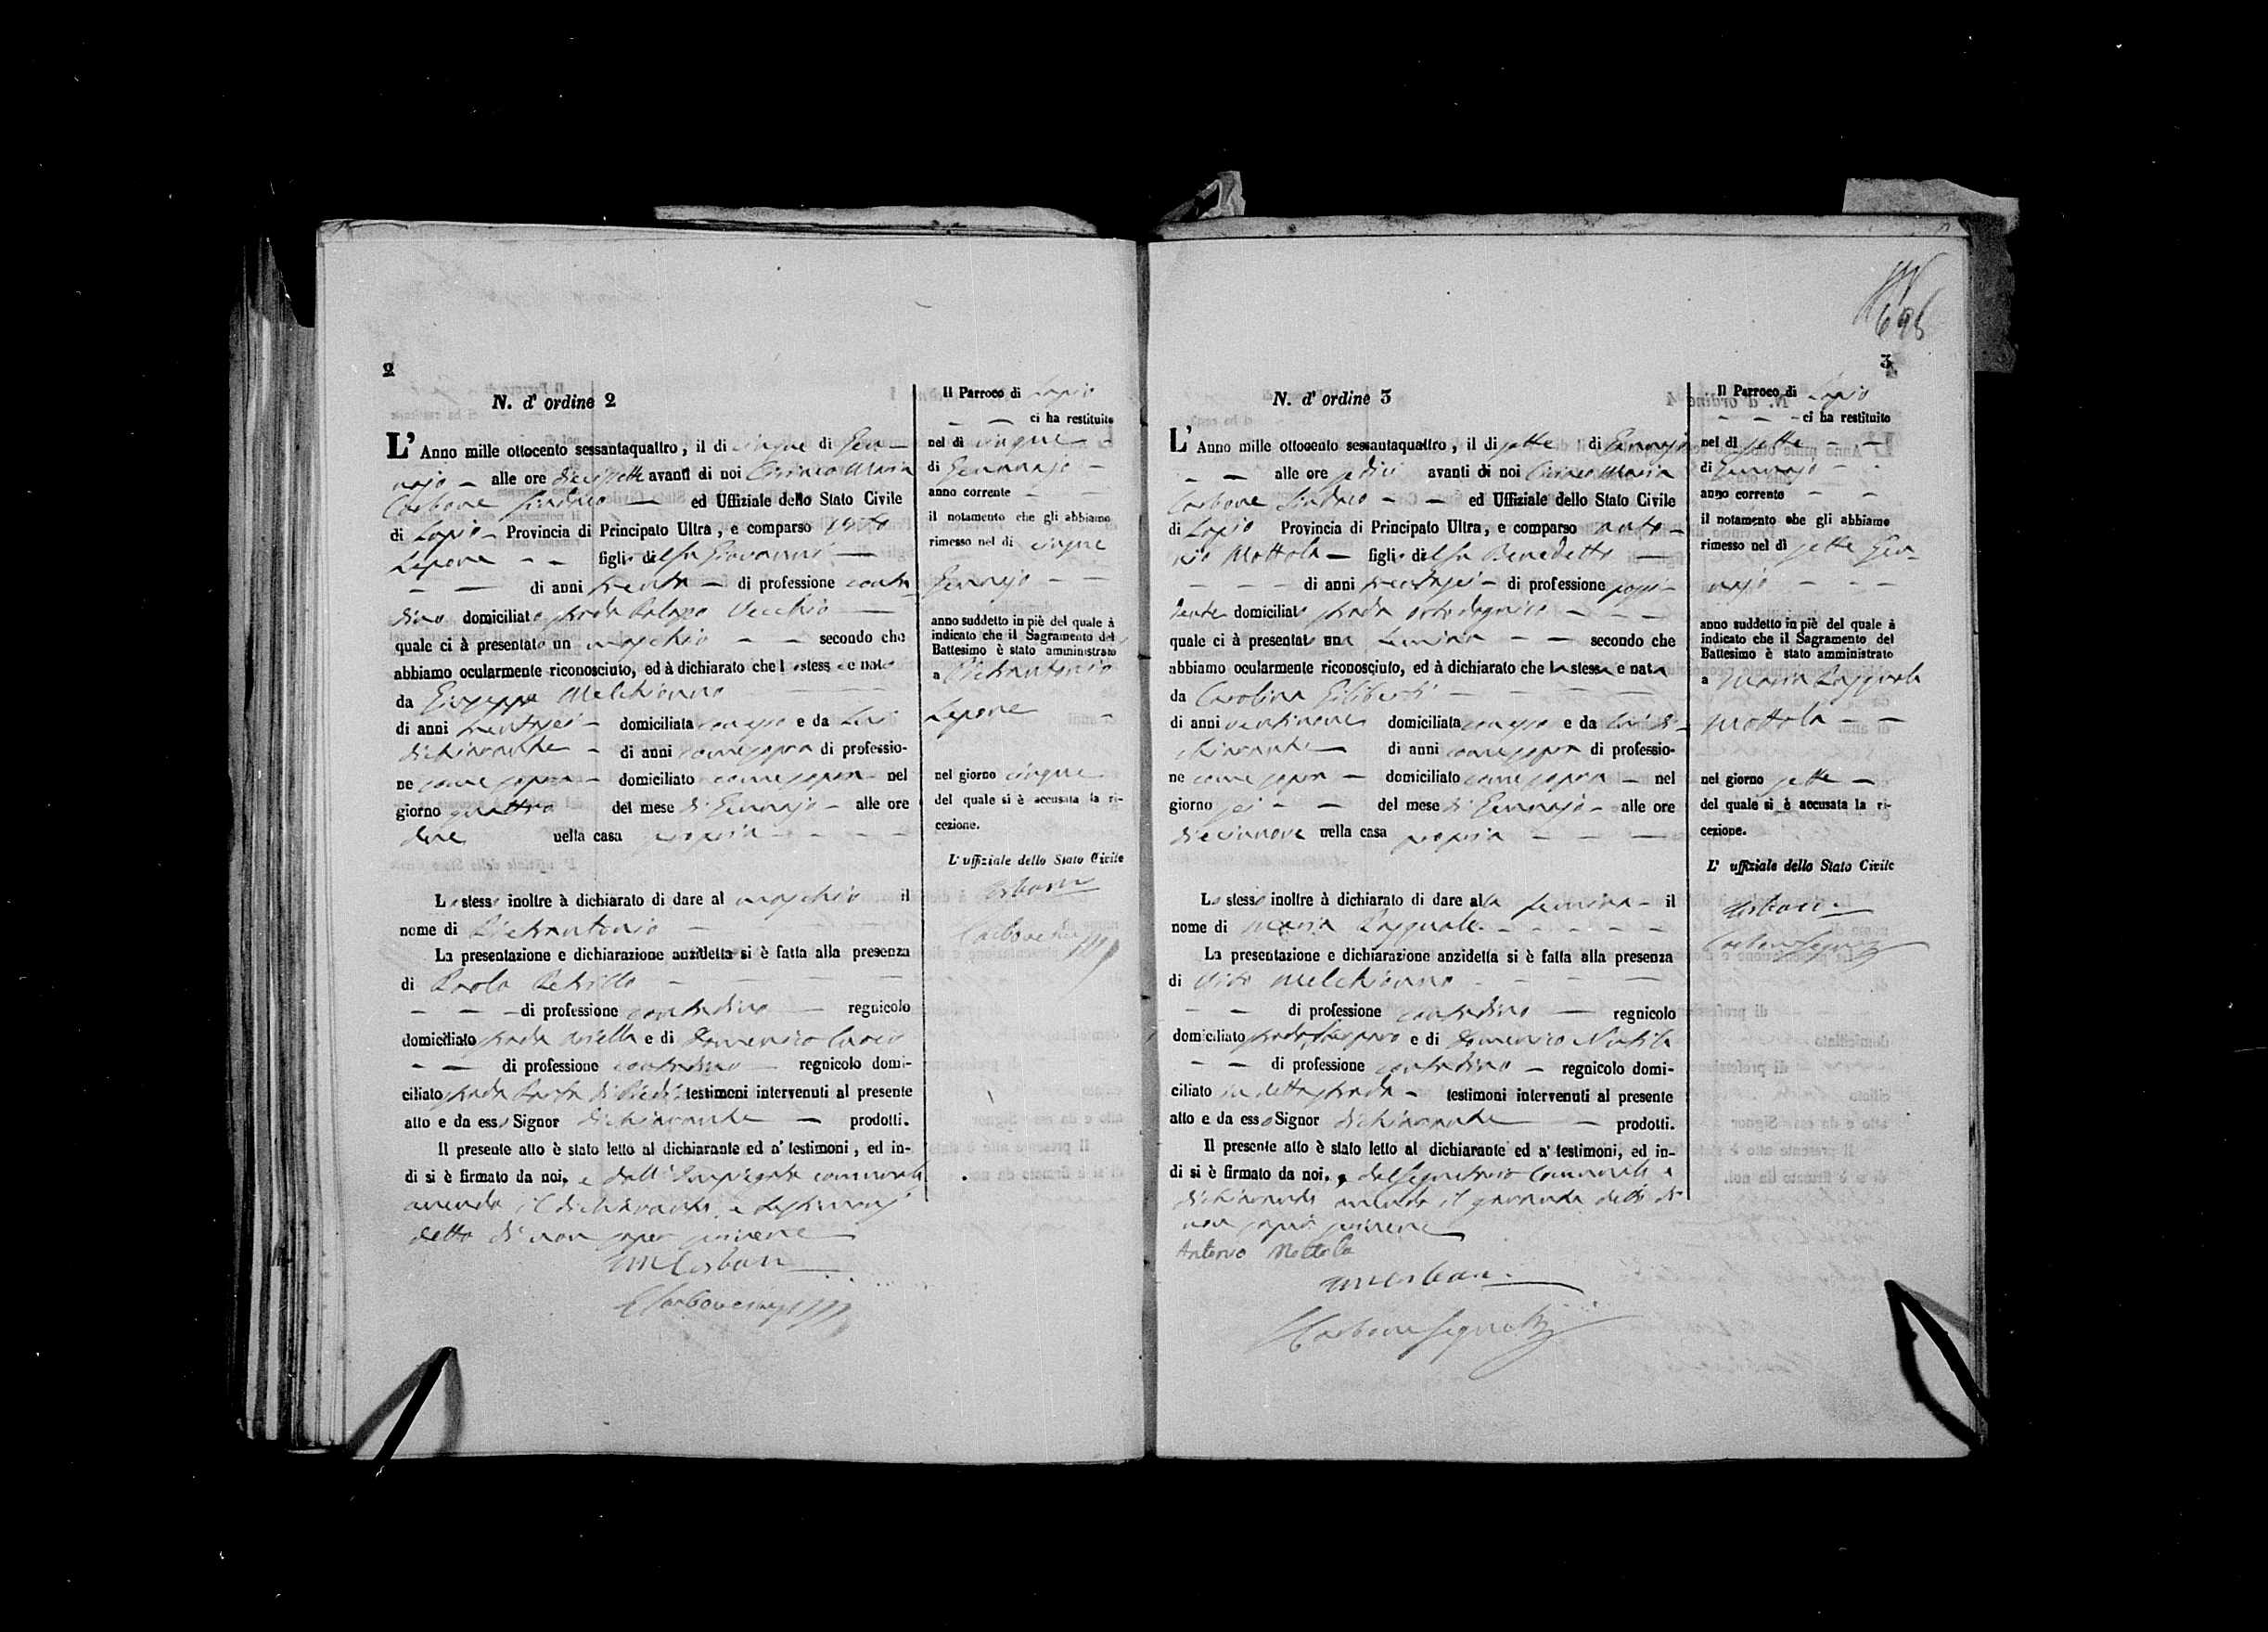 2
N. d' ordine 2
L' Anno mille ottocento sessantaquattro, il di cinque di Gen-
najo — alle ore diecissette avanti di noi Ciriaco Maria
Carbone Sindaco — ed Uffiziale dello Stato Civile
di Lapio — Provincia di Principato Ultra, e comparso Vito
Lepore — — figlio del fu Giovanni —
— — di anni trenta — di professione conta
dino domiciliato strada Palazzo Vecchio —
quale ci à presentato un maschio — — secondo che
abbiamo ocularmente riconosciuto, ed à dichiarato che lo stesso e nato
da Giuseppa Melchionno
di anni trentasei — domiciliata con esso e da lui
dichiarante — di anni come sopra di professio-
ne come sopra — domiciliato come sopra — nel
giorno quattro del mese di Gennajo — alle ore
due nella casa propria — — — —
Lo stesso inoltre à dichiarato di dare al maschio il
nome di Pietrantonio —
La presentazione e dichiarazione anzidetta si è fatta alla presenza
di Paolo Petrillo —
— — — di professione contadino — regnicolo
domiciliato strada e di Domenico
— — di professione contadino — regnicolo domi-
ciliato strada testimoni intervenuti al presente
atto e da esso Signor dichiarante — prodotti.
Il presente atto è stato letto al dichiarante ed a' testimoni, ed in-
di si è firmato da noi, e dall' Impiegato comunale
avendo il dichiarante, e testimonj
detto di non saper scrivere
Carbone
Carbone
Il Parroco di Lapio
— — ci ha restituito
nel di cinque —
di Gennajo —
anno corrente — —
il notamento che gli abbiamo
rimesso nel di cinque
Gennajo — —
anno suddetto in piè del quale à
indicato che il Sagramento del
Battesimo è stato amministrato
a Pietrantonio
Lepore —
nel giorno cinque
del quale si è accusata la ri-
cezione.
L' uffiziale dello Stato Civile
Carbone
Carbone
698
3
N. d' ordine 3
L' Anno mille ottocento sessantaquattro, il di sette di Gennajo
— — alle ore sedici avanti di noi Ciriaco Maria
Carbone Sindaco — — ed Uffiziale dello Stato Civile
di Lapio Provincia di Principato Ultra, e comparso Anto-
nio Mottola — figlio del fu Benedetto —
— — — di anni trentasei — di professione possi-
dente domiciliato strada — —
quale ci à presentato una femina — — secondo che
abbiamo ocularmente riconosciuto, ed à dichiarato che la stessa e nata
da Carolina Giliberti — — — —
di anni ventinove domiciliata con esso e da lui di-
chiarante — di anni come sopra di professio-
ne come sopra — domiciliato come sopra — nel
giorno sei — — del mese di Gennajo — alle ore
diecinnove nella casa propria — — —
Lo stesso inoltre à dichiarato di dare alla femina — il
nome di Maria Pasquale — — — — —
La presentazione e dichiarazione anzidetta si è fatta alla presenza
di Vito Melchionno — — — —
— — di professione contadino — regnicolo
domiciliato strada e di Domenico
— — di professione contadino — regnicolo domi-
ciliato in detta strada — testimoni intervenuti al presente
atto e da esso Signor dichiarante — prodotti.
Il presente atto è stato letto al dichiarante ed a' testimoni, ed in-
di si è firmato da noi, dal Segretario Comunale e
dichiarante avendo detto di
non saper scrivere
Antonio Mottola
Carbone
Carbone Segret
Il Parroco di Lapio
— — — ci ha restituito
nel di sette — —
di Gennajo — —
anno corrente — —
il notamento che gli abbiamo
rimesso nel di sette Gen-
najo — — —
anno suddetto in piè del quale à
indicato che il Sagramento del
Battesimo è stato amministrato
a Maria Pasquale
Mottola — —
nel giorno sette —
del quale si è accusata la ri-
cezione.
L' uffiziale dello Stato Civile
Carbone
Carbone Segret